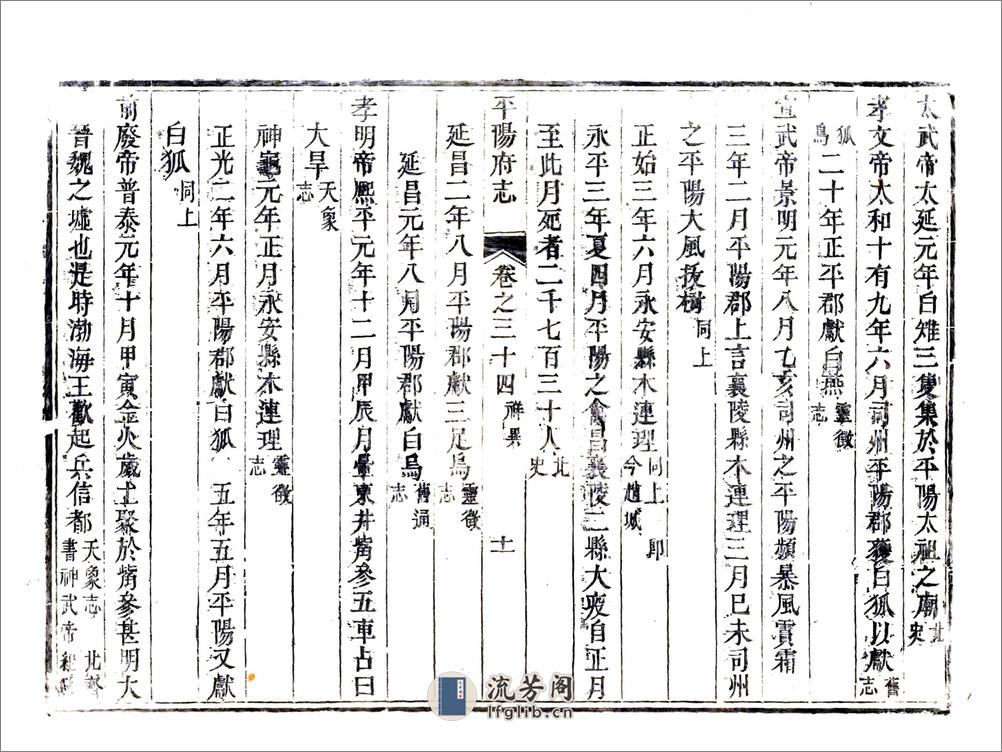 太武帝太延元年白雉三隻集於平陽太祖之廟北史
孝文帝太和十有九年六月司州平陽郡獲白狐以獻舊志
狐 二十年正平郡獻白燕靈徵志
宣武帝景明元年八月乞亥司州之平陽頻暴風霣霜
三年二月平陽郡上言襄陵縣木連理三月已未司州
之平陽大風拔樹同上
正始三年六月永安縣木連理同上 卽今趙城
永平三年夏四月平陽之禽昌襄陵二縣大疫自正月
至此月死者二千七百三十人北史
平陽府志 卷之三十四 祥異 十一
延昌二年八月平陽郡獻三足烏靈徵志
延昌元年八月平陽郡獻白烏舊通志
孝明帝熙平元年十二月甲辰月暈東井觜參五車占曰
大旱天象志
神龜元年正月永安縣木連理靈徵志
正光二年六月平陽郡獻白狐 五年五月平陽又獻
白狐同上
前廢帝普泰元年十月甲寅金火歲土聚於觜參甚明大
晉魏之墟也是時渤海王歡起兵信都天象志 北齊書神武帝紀
流芳阁
lfglib.cn